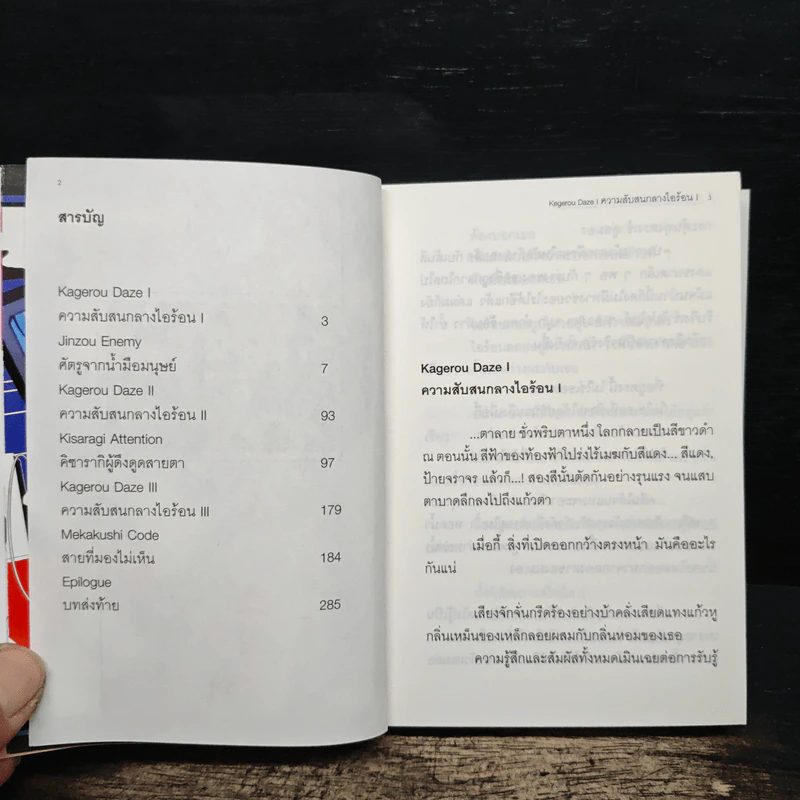 2
สารบัญ
Kagerou Daze I
ความสับสนกลางไอร้อน I 3
Jinzou Enemy
ศัตรูจากน้ำมือมนุษย์ 7
Kagerou Daze II
ความสับสนกลางไอร้อน II 93
Kisaragi Attention
คิซารากิผู้ดึงดูดสายตา 97
Kagerou Daze III
ความสับสนกลางไอร้อน III 179
Mekakushi Code
สายที่มองไม่เห็น 184
Epilogue
บทส่งท้าย 285
Kegerou Daze I ความสับสนกลางไอร้อน I 3
Kagerou Daze I
ความสับสนกลางไอร้อน I
...ตาลาย ชั่วพริบตาหนึ่ง โลกกลายเป็นสีขาวดำ
ณ ตอนนั้น สีฟ้าของท้องฟ้าโปร่งไร้เมฆกับสีแดง... สีแดง,
ป้ายจราจร แล้วก็...! สองสีนั้นตัดกันอย่างรุนแรง จนแสบ
ตาบาดลึกลงไปถึงแก้วตา
เมื่อกี้ สิ่งที่เปิดออกกว้างตรงหน้า มันคืออะไร
กันแน่
เสียงจักจั่นกรีดร้องอย่างบ้าคลั่งเสียดแทงแก้วหู
กลิ่นเหม็นของเหล็กลอยผสมกับกลิ่นหอมของเธอ
ความรู้สึกและสัมผัสทั้งหมดเมินเฉยต่อการรับรู้